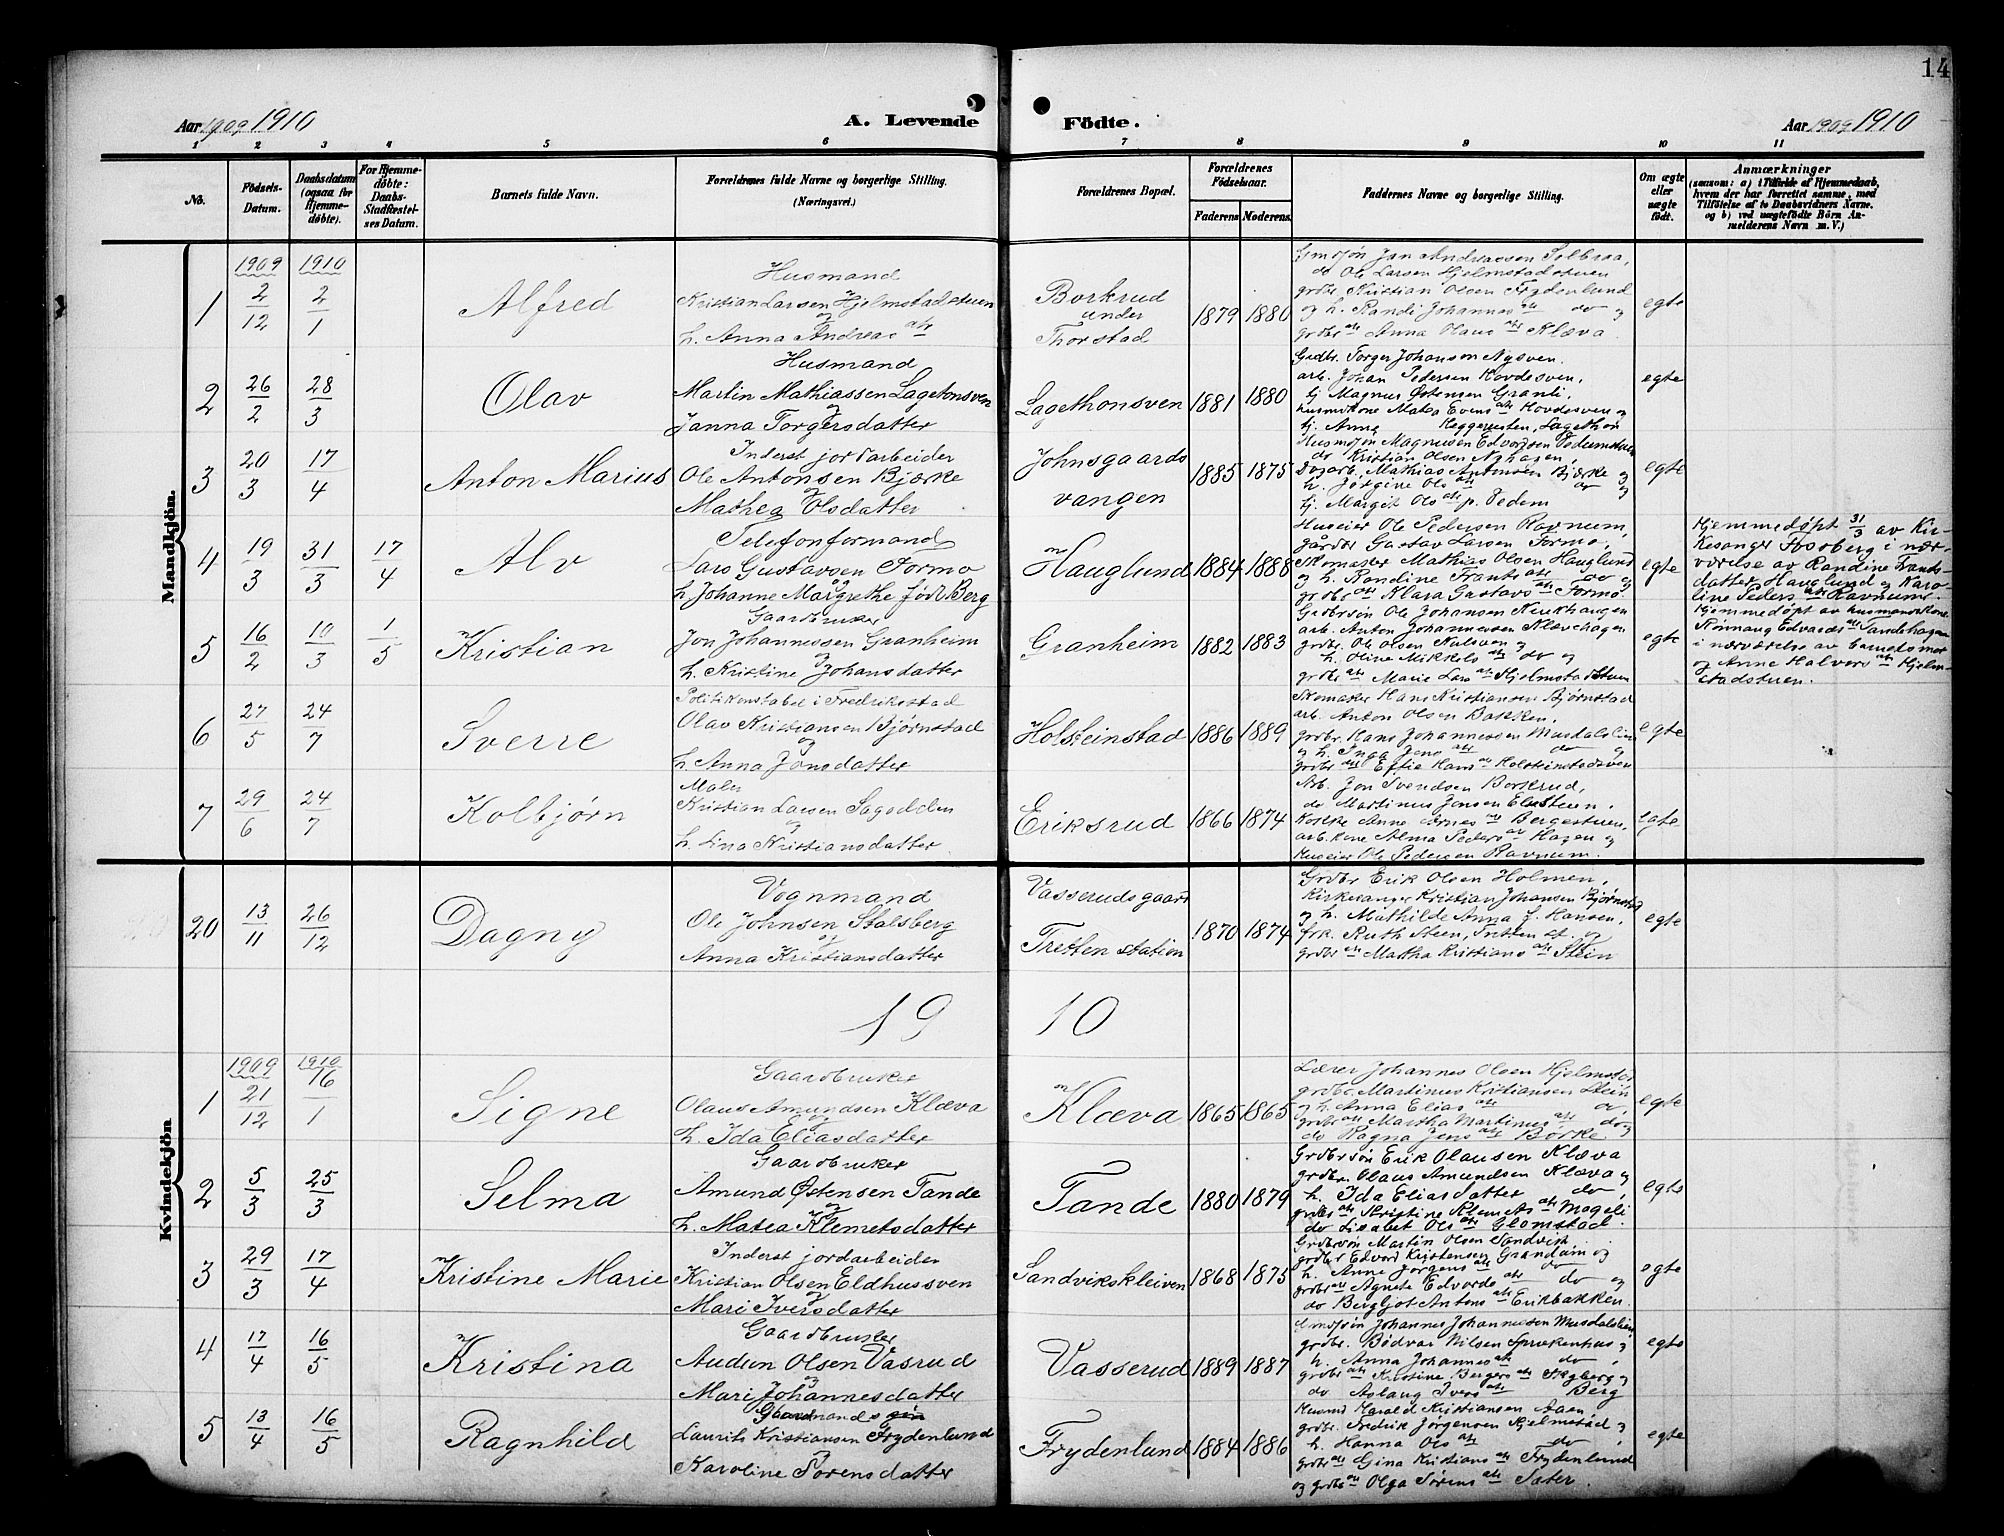 14
Aar 1909 1910
A. Levende
Födte.
Aar 1909 1910
1 2 3 4 5 6 7 8 9 10 11
No.
Födsels-
Datum.
Daabsdatum
(ogsaa for
Hjemme-
döbte).
For Hjemme-
döbte:
Daabs-
Stadfæstel-
ses Datum.
Barnets fulde Navn.
Forældrenes fulde Navne og borgerlige Stilling.
(Næringsvei.)
Forældrenes Bopæl.
Forældrenes
Födselsaar.
Faderens Moderens
Faddernes Navne og borgerlige Stilling.
Om ægte
eller
uægte
födt.
Anmærkninger
(saasom: a) i Tilfælde af Hjemmedaab,
hvem der har forrettet samme, med
Tilföielse af to Daabsvidners Navne,
og b) ved uægtefödte Börn An-
melderens Navn m. V.)
Mandkjön.
1909 1910
1
2/12
2/1
Alfred
Husmand
Kristian Larsen Hjelmstadstuen
og
h. Anna Andreas dtr
Borkrud
under
Thorstad
1879 1880
Gmsøn Jan Andreassen Solbraa,
do Ole Larsen Hjelmstadstuen
grdbr. Kristian Olsen Frydenlund
og h. Randi Johannes dtr do og
grdbr dtr Anna Olaus dtr Klæva
egte
2
26/2
28/3
Olav
Husmand
Martin Mathiassen Lagethonsven
og
Janna Torgersdatter
Lagethonsven
1881 1880
Grdbr. Torger Johansen Nysven.
arb. Johan Pedersen Hovdesven,
tj Magnus Østensen Granli,
husm.kone Matea Evens dtr Hovdesven og
tj. Anna Heggerusten, Lagethon
egte
3
20/3
17/4
Anton Marius
Inderst jordarbeider
Ole Antonsen Bjerke
og
Mathea Olsdatter
Johnsgaards
vangen
1885 1875
Husmsøn Magnus Edvardsen
do Kristian Olsen Nyhagen,
Dagarb. Mathias Antonsen Bjerke og
h. Jørgine Ols dtr do og
tj. Margit Ols dtr p. Pedem
egte
4
19/3
31/3
17/4
Alv
Telefonformand
Lars Gustavsen Formo
og
h. Johanne Margrethe født Berg
Hauglund
1884 1888
Huseier Ole Pedersen Ravnum,
gårdbr Gustav Larsen Formo,
Skomaker Mathias Olsen Hauglund
og h. Randine Frants dtr do og
grdbr. dtr Klara Gustavs dtr Formo
egte
Hjemmedøpt 31/3 av Kir-
kesanger Fossberg i nær-
værelse av Randine Frants-
datter Hauglund og Karo-
line Peders dtr Ravnum.
5
16/2
10/3
1/5
Kristian
Gaardbruker
Jon Johannessen Granheim
og
h. Kristine Johansdatter
Granheim
1882 1883
Grdbrsøn Ole Johansen
arb. Anton Johannessen Klævehagen
grdbr. Ole Olsen
h. Oline Mikkels dtr do og
grdbr dtr Marie Lars dtr Hjelmstadstuen
egte
Hjemmedøpt av husmandskone
Rønnaug Edvards dtr Tandehagen
i nærværelse av barnets mor
og Anne Halvors dtr Hjelm-
stadstuen.
6
27/5
24/7
Sverre
Politikonstabel i Fredrikstad
Olav Kristiansen Bjørnstad
og
h. Anna Jonsdatter
Holsteinstad
1886 1889
Skomaker Hans Kristiansen Bjørnstad
arb. Anton Olsen Bakken,
grdbr. Hans Johannessen Musdalslien
og h. Inga Jens dtr do og
grdbr dtr Effie Hans dtr Holsteinstadsven
egte
7
29/6
24/7
Kolbjørn
Maler
Kristian Larsen Sagodden
og
h. Lina Kristiansdatter
Eriksrud
1866 1874
Arb. Jon Svendsen Borkrud,
do Martinus Jensen
Anne Arnes dtr Bergestuen,
arb.kone Alma Peders dtr Hagen og
Huseier Ole Pedersen Ravnum.
egte
Kvindekjön
20
13/11
26/12
Dagny
Vognmand
Ole Johnsen Stalsberg
og
Anna Kristiansdatter
Vasserudsgaard
Tretten station
1870 1874
Grdbr Erik Olsen Holmen,
Kirkesanger Kristian Johansen Bjørnstad
og h. Mathilde Anna f. Hansen,
frk. Ruth Steen, Tretten st. og
grdbr dtr Martha Kristians dtr Stein
egte
19 10
1909 1910
1
21/12
16/1
Signe
Gaardbruker
Olaus Amundsen Klæva
og
h. Ida Eliasdatter
Klæva
1865 1865
Lærer Johannes Olsen Hjelmstad
grdbr. Martinus Kristiansen Stein
og h. Anna Elias dtr do,
grdbr dtr Martha Martinus dtr do og
do Ragna Jens dtr Borke
egte
2
5/3
25/3
Selma
Gaardbruker
Amund Østensen Tande
og
h. Matea Klemetsdatter
Tande
1880 1879
Grdbrsøn Erik Olausen Klæva
grdbr. Olaus Amundsen Klæva og
h. Ida Elias datter do,
grdbr dtr Kristine Klemets dtr Mageli
do Lisabet Ols dtr Glomstad.
egte
3
29/3
17/4
Kristine Marie
Inderst jordarbeider
Kristian Olsen Eldhussven
og
Mari Iversdatter
Sandvikskleiven
1868 1875
Grdbrsøn Martin Olsen Sandvik
grdbr Edvard Kristensen Grandum og
h. Anne Jørgens dtr do
grdbr dtr Agnete Edvards dtr do og
do Bergljot Antons dtr Erikbakken.
egte
4
17/4
16/5
Kristina
Gaardbruker
Audun Olsen Vasrud
og
Mari Johannesdatter
Vasserud
1889 1887
Gmsøn Johannes Johannessen Musdalslien,
grdbr. Bødvar Nilsen Sprækenhus og
h. Anna Johannes dtr do,
grdbr dtr Kristine Bergers dtr Skyberg og
do Aslaug Ivers dtr Berg
egte
5
13/4
16/5
Ragnhild
Gaardmandssøn
Laurits Kristiansen Frydenlund
og
Karoline Sørensdatter
Frydenlund
1884 1886
Husmd Harald Kristiansen Aaen
grdbr. Fredrik Jørgensen Hjelmstad og
h. Hanna Ols dtr do,
grdbr dtr Gina Kristians dtr Frydenlund
og grdbr dtr Olga Sørens dtr Sæter.
egte